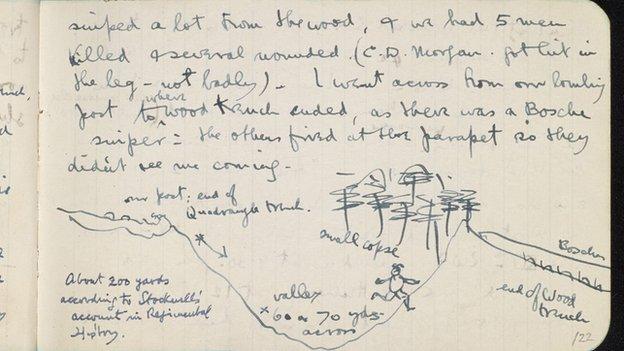 sniped a lot from the wood, & we had 5 men
killed & several wounded. (C.D. Morgan. got hit in
the leg - not badly). I went across from our bombing
post to where wood trench ended, as there was a Bosche
sniper: the others fired at the parapet so they
didn't see me coming -
our post: end of
Quadrangle trench.
small copse
Bosches
About 200 yards
according to Stockwell's
account in Regimental
History.
valley
60 or 70 yds
across
end of Wood
trench
122